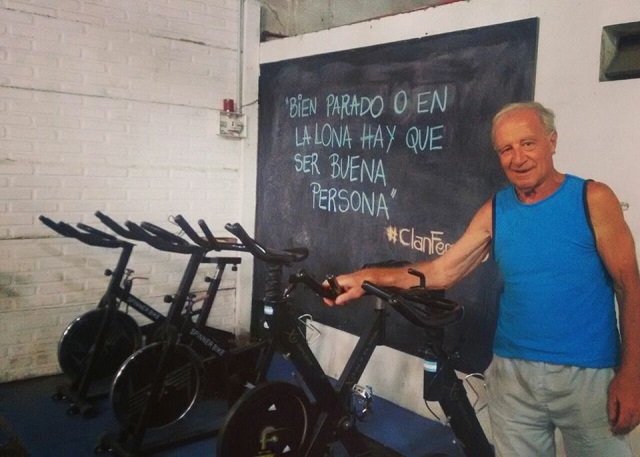 "BIEN PARADO O EN
LA LONA HAY QUE
SER BUENA
PERSONA"